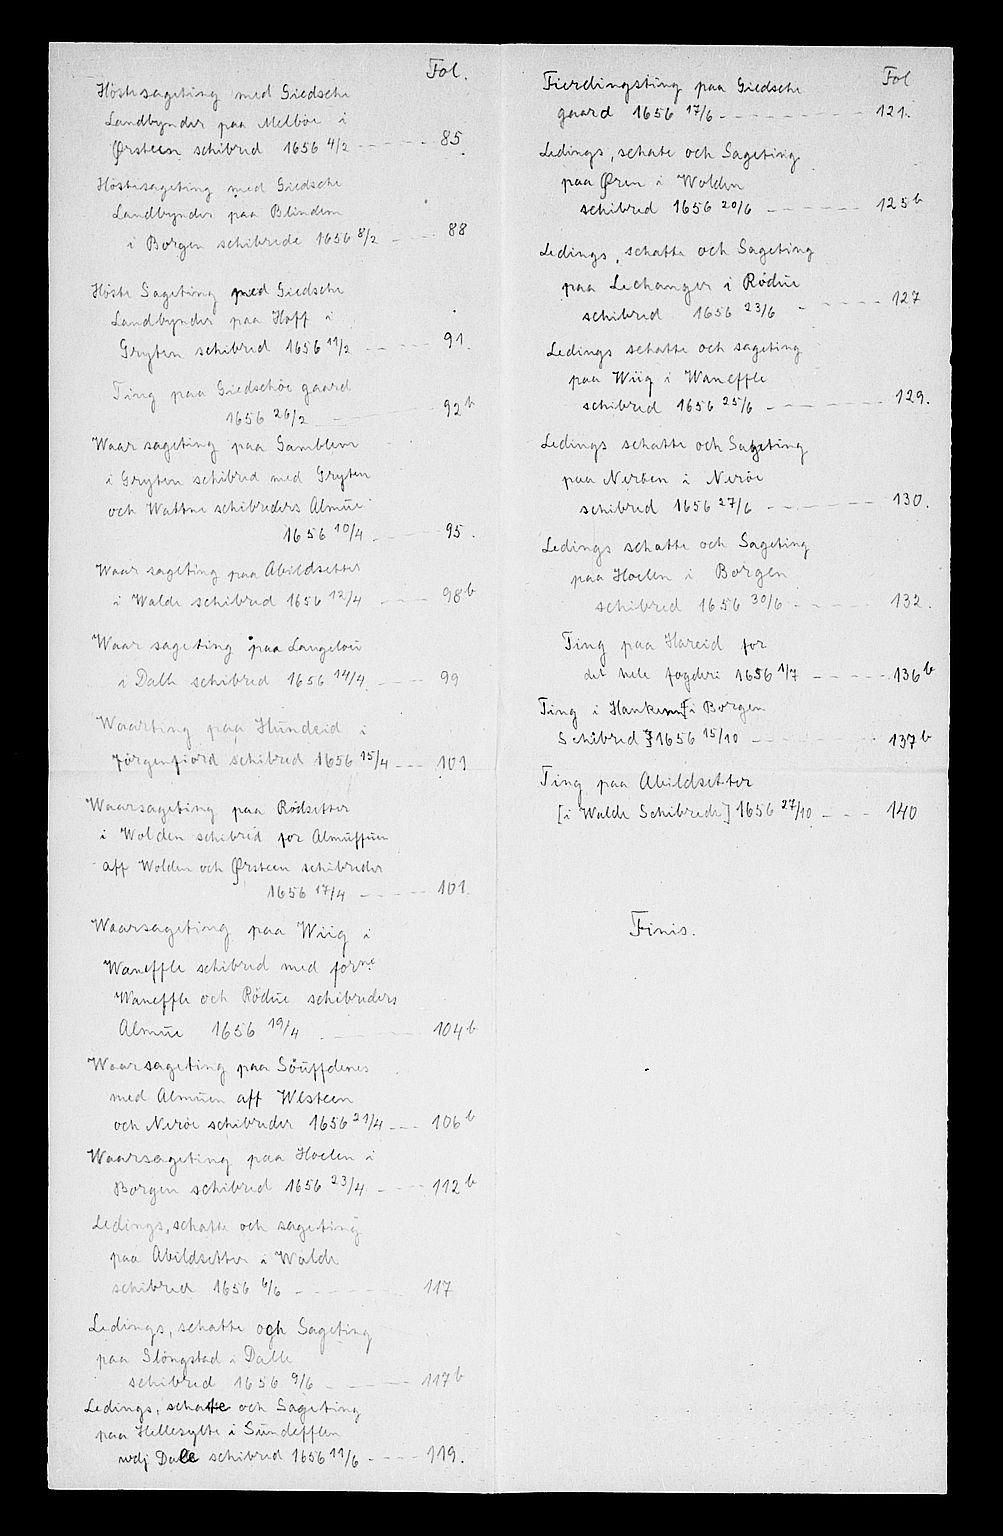 Fol.
Höstesageting med Giedsche
Landbynder paa Melböe i
Ørsteen schibred 1656 4/2 - - - - - 85.
Höstesageting med Giedsche
Landbynder paa Blindem
i Borgen schibrede 1656 8/2 - - - - 88
Höste Sageting med Giedsche
Landbynder paa Hoff i
Gryten schibred 1656 11/2 - - - - 91.
Ting paa Giedschöe gaard
1656 26/2 - - - - 92b
Waar sageting paa Gamblem
i Gryten schibred med Gryten
och Wattne schibreders Almue
1656 10/4 - - - - 95.
Waar sageting paa Abildsetter
i Walde schibred 1656 12/4 - - - - 98b
Waar sageting paa Langeloe
i Dalle schibred 1656 14/4 - - - - 99
Waarting paa Hundeid i
Jörgenfiord schibred 1656 15/4 - - - 101
Waarsageting paa Rödsetter
i Wolden schibred for Almuffuen
aff Wolden och Ørsteen schibreder
1656 17/4 - - - - 101.
Waarsageting paa Wiig i
Waneffle schibred med forne
Waneffle och Rödue schibreders
Almue 1656 19/4 - - - - 104b
Waarsageting paa Söuffdenes
med Almuen aff Wlsteen
och Neröe schibreder 1656 21/4 - - - 106b
Waarsageting paa Hoelen i
Borgen schibred 1656 23/4 - - - - 112b
Ledings, schatte och sageting
paa Abildsetter i Walde
schibred 1656 6/6 - - - - 117
Ledings, schatte och Sageting
paa Slöngstad i Dalle
schibred 1656 9/6 - - - - 117b
Ledings, schatte och Sageting
paa Hellesylte i Sundefflen
wdj Dale schibred 1656 11/6 - - - - 119.
Fol
Fierdingsting paa Giedsche
gaard 1656 17/6 - - - - - 121.
Ledings, schate och Sageting
paa Øren i Wolden
schibred 1656 20/6 - - - - 125b
Ledings, schatte och Sageting
paa Lechanger i Rödue
schibred 1656 23/6 - - - - 127
Ledings schatte och sageting
paa Wiig i Waneffle
schibred 1656 25/6 - - - - 129.
Ledings schatte och Sageting
paa Neröen i Neröe
schibred 1656 27/6 - - - - 130.
Ledings schatte och Sageting
paa Hoelen i Borgen
schibred 1656 30/6 - - - - 132.
Ting paa Hareid for
det hele fogderi 1656 1/7 - - - - 136b
Ting i Hankenn[i Borgen
Schibred] 1656 15/10 - - - - 137b
Ting paa Abildsetter
[i Walde Schibrede] 1656 27/10 - - - 140
Finis.